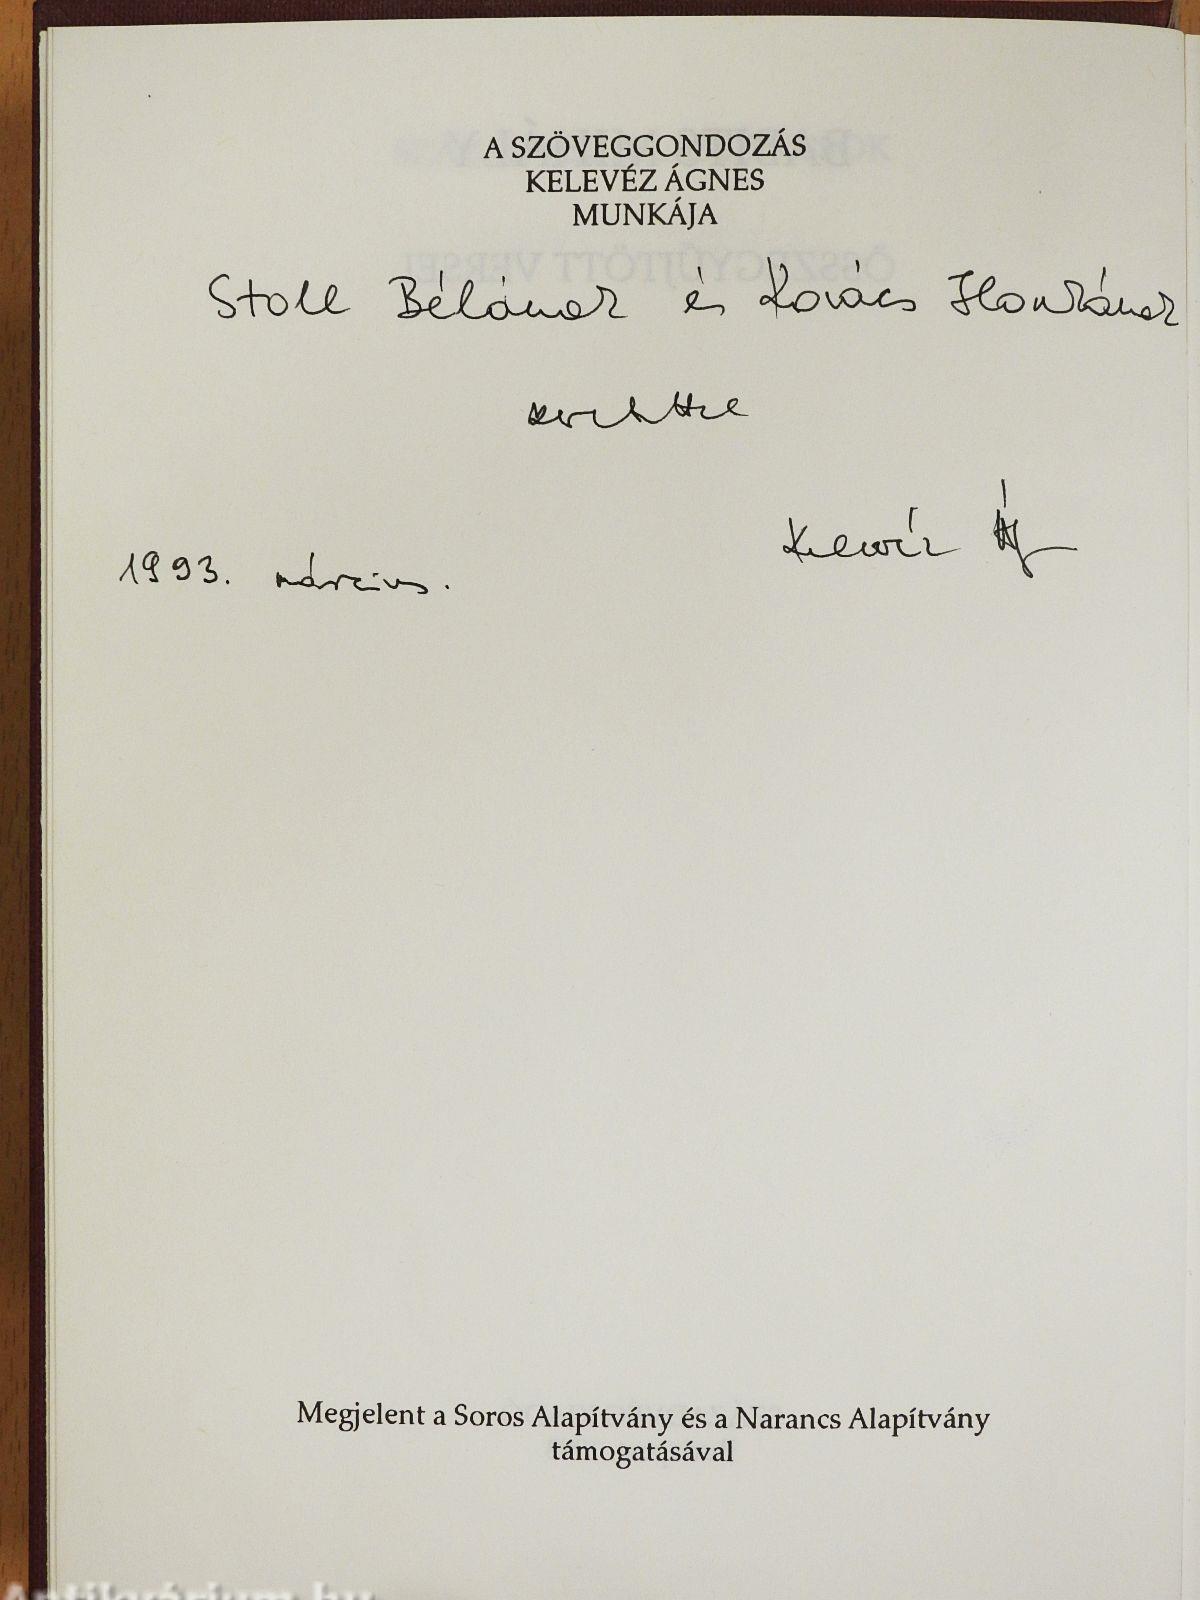 A SZÖVEGGONDOZÁS
KELEVÉZ ÁGNES
MUNKÁJA
Stoll Bélának és Kovács Ilonkának
szeretettel
Kelevéz Ági
1993. március.
Megjelent a Soros Alapítvány és a Narancs Alapítvány
támogatásával
Antikvárium.hu